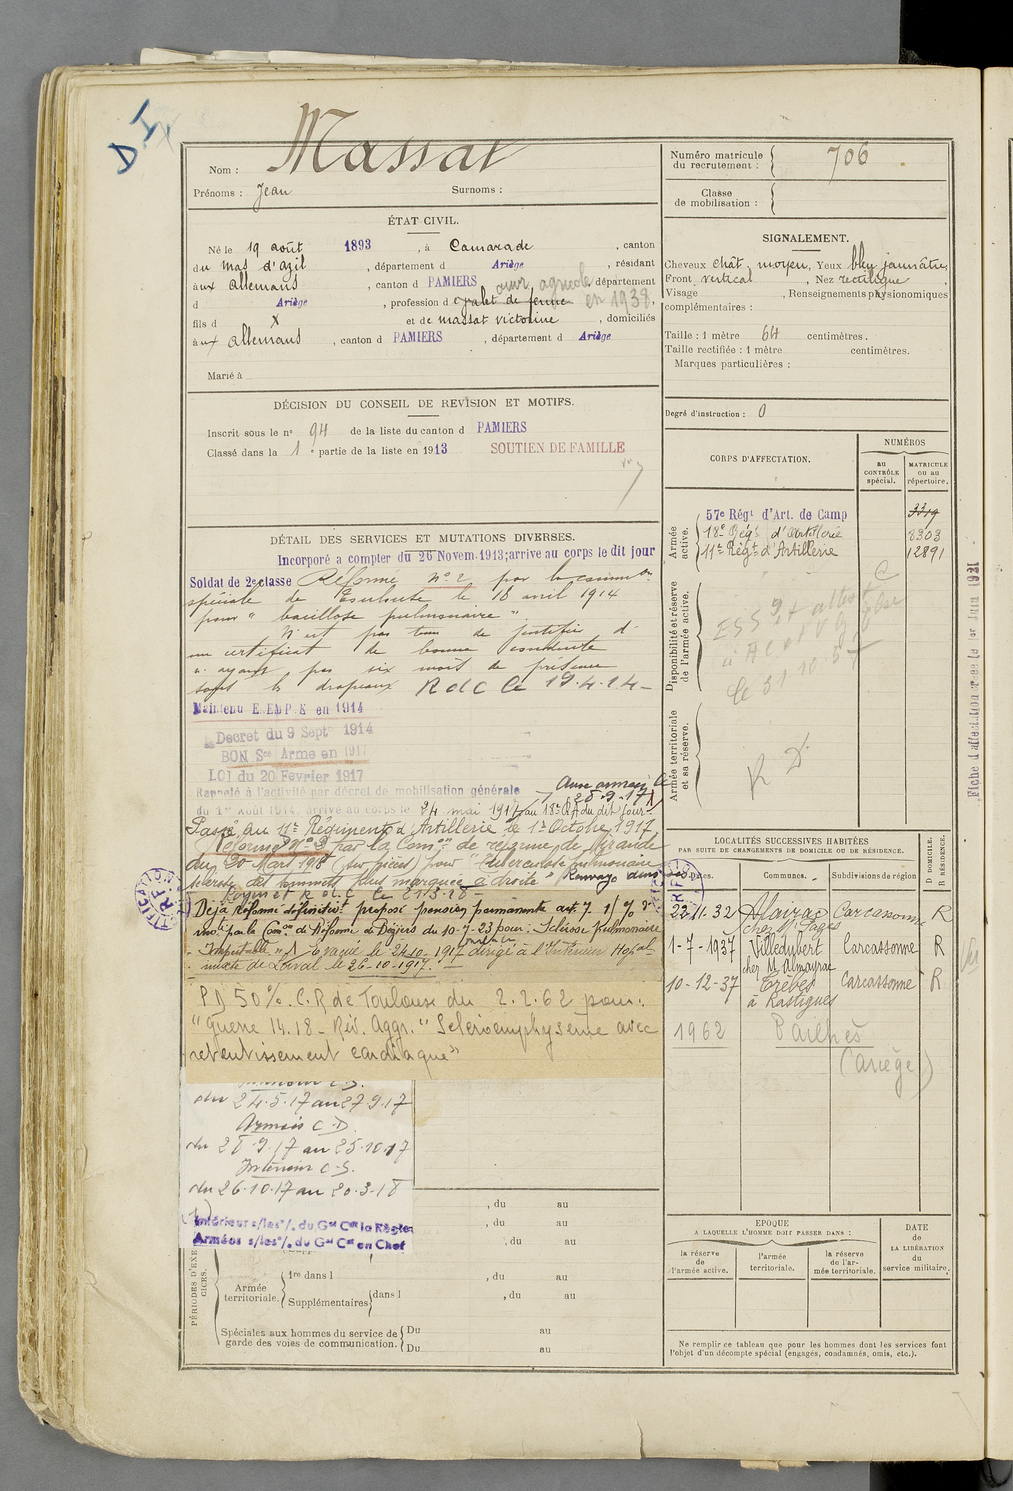 D I
Nom : Massat
Prénoms : Jean Surnoms :
ÉTAT CIVIL.
Né le 19 août 1893 , à Camarade , canton
du mas d'azil , département d Ariège , résidant
aux allemans , canton d PAMIERS département
ouvr agricole
d Ariège , profession d valet de ferme en 1938,
fils d X et de massat victorine , domiciliés
aux allemans , canton d PAMIERS , département d Ariège
Marié à
DÉCISION DU CONSEIL DE REVISION ET MOTIFS.
Inscrit sous le n° 94 de la liste du canton d PAMIERS
Classé dans la 1e partie de la liste en 1913 SOUTIEN DE FAMILLE
DÉTAIL DES SERVICES ET MUTATIONS DIVERSES.
Incorporé a compter du 26 Novem. 1913; arrive au corps le dit jour
Soldat de 2e classe Réformé N° 2 par la common
spéciale de Toulouse le 18 avril 1914
pour " bacillose pulmonaire "
N'est pas tenu de justifier d'
un certificat de bonne conduite
n'ayant pas six mois de présence
sous les drapeaux R d C le 19.4.14-
Maintenu E.EMP.E en 1914
Decret du 9 Septe 1914
BON Sce Arme en 1917
LOI du 20 Fevrier 1917
Rappelé à l'activité par décret de mobilisation générale
Aux armées le
28-9-17
du 1er Août 1914, arrivé au corps le 24 mai 1917, au 18e RA du dit jour
Passé au 11e Régiment d'Artillerie le 1er Octobre 1917,
Réformé N° 2 par la Comon de réforme de Mirande
du 20 Mars 1918 (sur pièces) pour "Tuberculose pulmonaire
sclérose des sommets plus marquée à droite" Renvoyé dans ses
foyers et R d C le 21-3-18 -
Déjà réformé définitivt proposé pension permanente art. 7. 15% d'
inv. par la Comon de Réforme de Béziers du 10-7-23 pour : Sclérose pulmonaire
- Imputable " Evacué le 24-10-1917 dirigé à l'Intérieur Hopal
mixte de Laval le 26-10-1917. —
P D 50%. C.R. de Toulouse du 2.2.62 pour:
"Guerre 14.18 - Rév. Aggr." Scléroemphysème avec
retentissement cardiaque"
Intérieur C.S.
du 24.5.17 au 27.9.17
Armées C.D.
du 28.9.17 au 25.10.17
Intérieur C.S.
du 26.10.17 au 20.3.18
Intérieur s/les °/. du Gal Ct la Région
Armées s/les °/. du Gal Ct en Chef
PÉRIODES D'EXERCICES.
, du au
, du au
, du au
Armée territoriale. 1re dans l , du au
Supplémentaires dans l , du au
Spéciales aux hommes du service de garde des voies de communication. Du au
Du au
Numéro matricule du recrutement : 706
Classe de mobilisation :
SIGNALEMENT.
Cheveux chât. moyen, Yeux bleu jaunâtre,
Front vertical , Nez rectiligne ,
Visage , Renseignements physionomiques
complémentaires :
Taille : 1 mètre 64 centimètres.
Taille rectifiée : 1 mètre centimètres.
Marques particulières :
Degré d'instruction : 0
CORPS D'AFFECTATION.
NUMÉROS
au CONTRÔLE spécial.
MATRICULE ou au répertoire.
Armée active.
57e Régt d'Art. de Camp 3319
18e Régt d'Artillerie 8303
11e Régt d'Artillerie 12891
Disponibilité et réserve de l'armée active.
le 31 10 57
Armée territoriale et sa réserve.
R D
Fiche d'affectation créée le 1er Juin 1931
LOCALITÉS SUCCESSIVES HABITÉES
PAR SUITE DE CHANGEMENTS DE DOMICILE OU DE RÉSIDENCE.
Dates. Communes. Subdivisions de région D DOMICILE. R RÉSIDENCE.
22-11-32 Alairac Carcassonne R
chez Mr Pagès
1-7-1937 Villedubert Carcassonne R
chez M. Almayrac
10-12-37 Trèbes Carcassonne R
à Rastigues
1962 Pailhès
(Ariège)
EPOQUE
A LAQUELLE L'HOMME DOIT PASSER DANS :
la réserve de l'armée active.
l'armée territoriale.
la réserve de l'armée territoriale.
DATE DE LA LIBÉRATION du service militaire.
Ne remplir ce tableau que pour les hommes dont les services font
l'objet d'un décompte spécial (engagés, condamnés, omis, etc.).